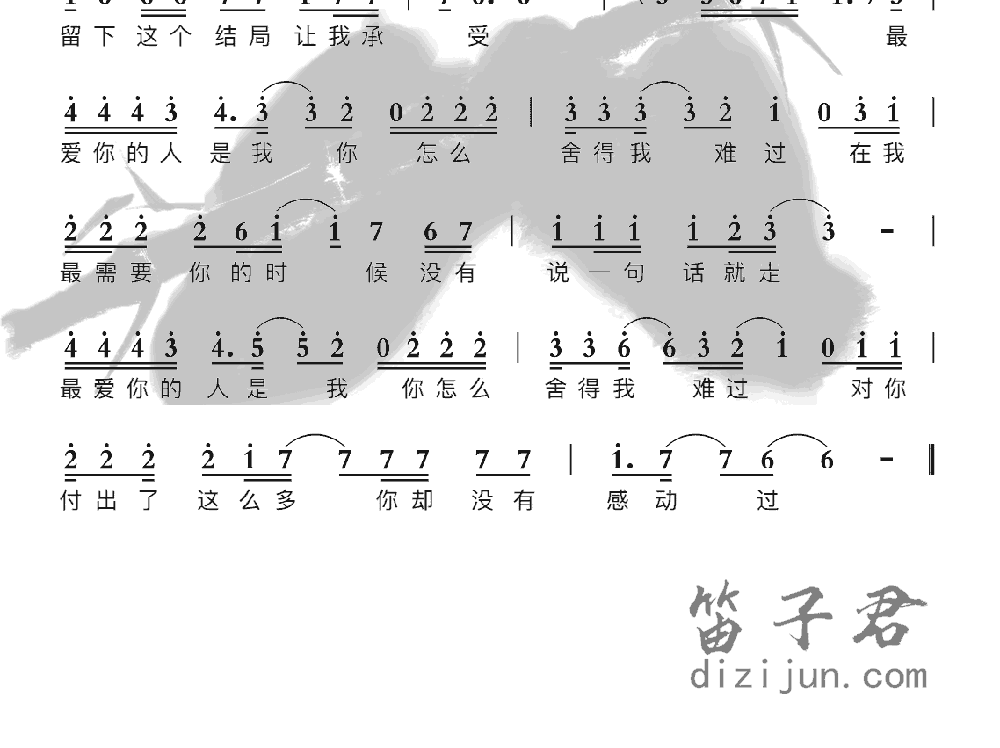 留下 这个 结局 让我承 受 最
4 4 4 3 4. 3 3 2 0 2 2 2 | 3 3 3 3 2 1 0 3 1 |
爱你的人 是我 你 怎么 舍得我 难过 在我
2 2 2 2 6 1 1 7 6 7 | 1 1 1 1 2 3 3 - |
最需要 你的时 候 没有 说一句 话就走
4 4 4 3 4. 5 5 2 0 2 2 2 | 3 3 6 6 3 2 1 0 1 1 |
最爱你的 人是 我 你怎么 舍得我 难过 对你
2 2 2 2 1 7 7 7 7 7 7 | 1. 7 7 6 6 - ‖
付出了 这么多 你却 没有 感动 过
笛子君
dizijun.com